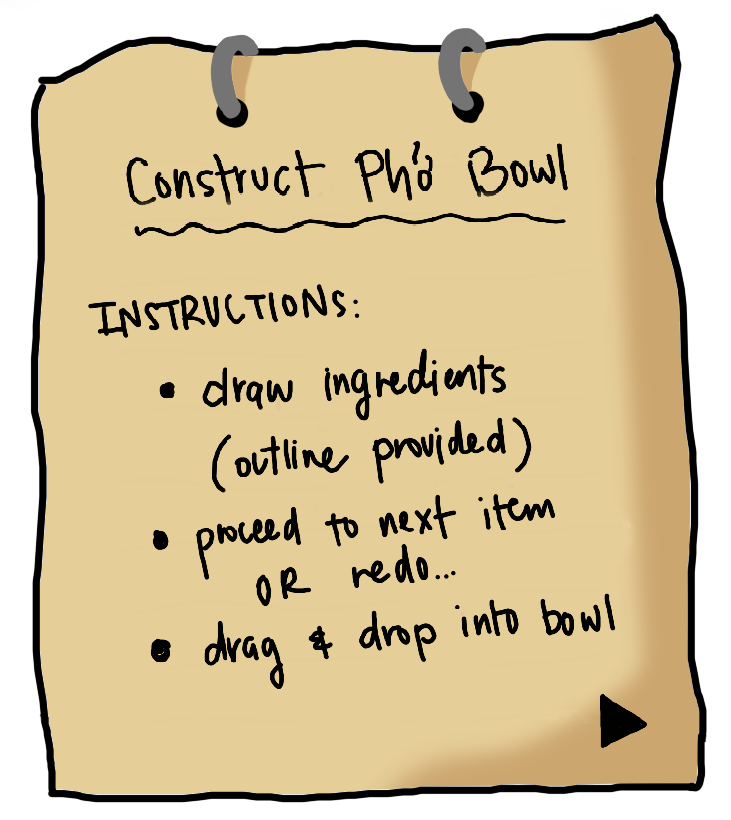 Construct Phở Bowl
INSTRUCTIONS:
• draw ingredients
(outline provided)
• proceed to next item
OR redo...
• drag & drop into bowl